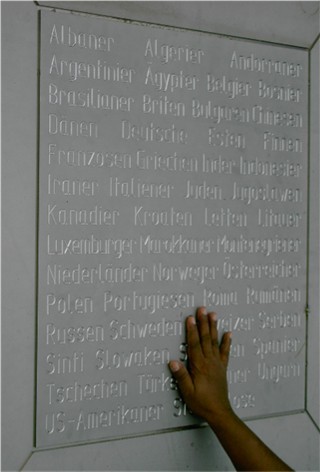 Albaner Algerier Andorraner
Argentinier Ägypter Belgier Bosnier
Brasilianer Briten Bulgaren Chinesen
Dänen Deutsche Esten Finnen
Franzosen Griechen Inder Indonesier
Iraner Italiener Juden Jugoslawen
Kanadier Kroaten Letten Litauer
Luxemburger Marokkaner Montenegriener
Niederländer Norweger Österreicher
Polen Portugiesen Roma Rumänen
Russen Schweden eizer Serben
Sinti Slowaken S en Spanier
Tschechen Türke ner Ungarn
US-Amerikaner St lose